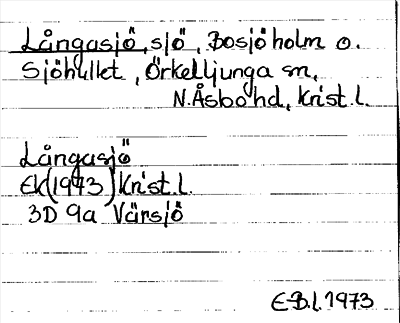 Långasjö, sjö, Bosjöholm o.
Sjöhultet, Örkelljunga sn,
N. Åsbo hd, Krist. l.
Långasjö
Ek (1973) Krist. l.
3D 9a Värsjö
E-B.l. 1973